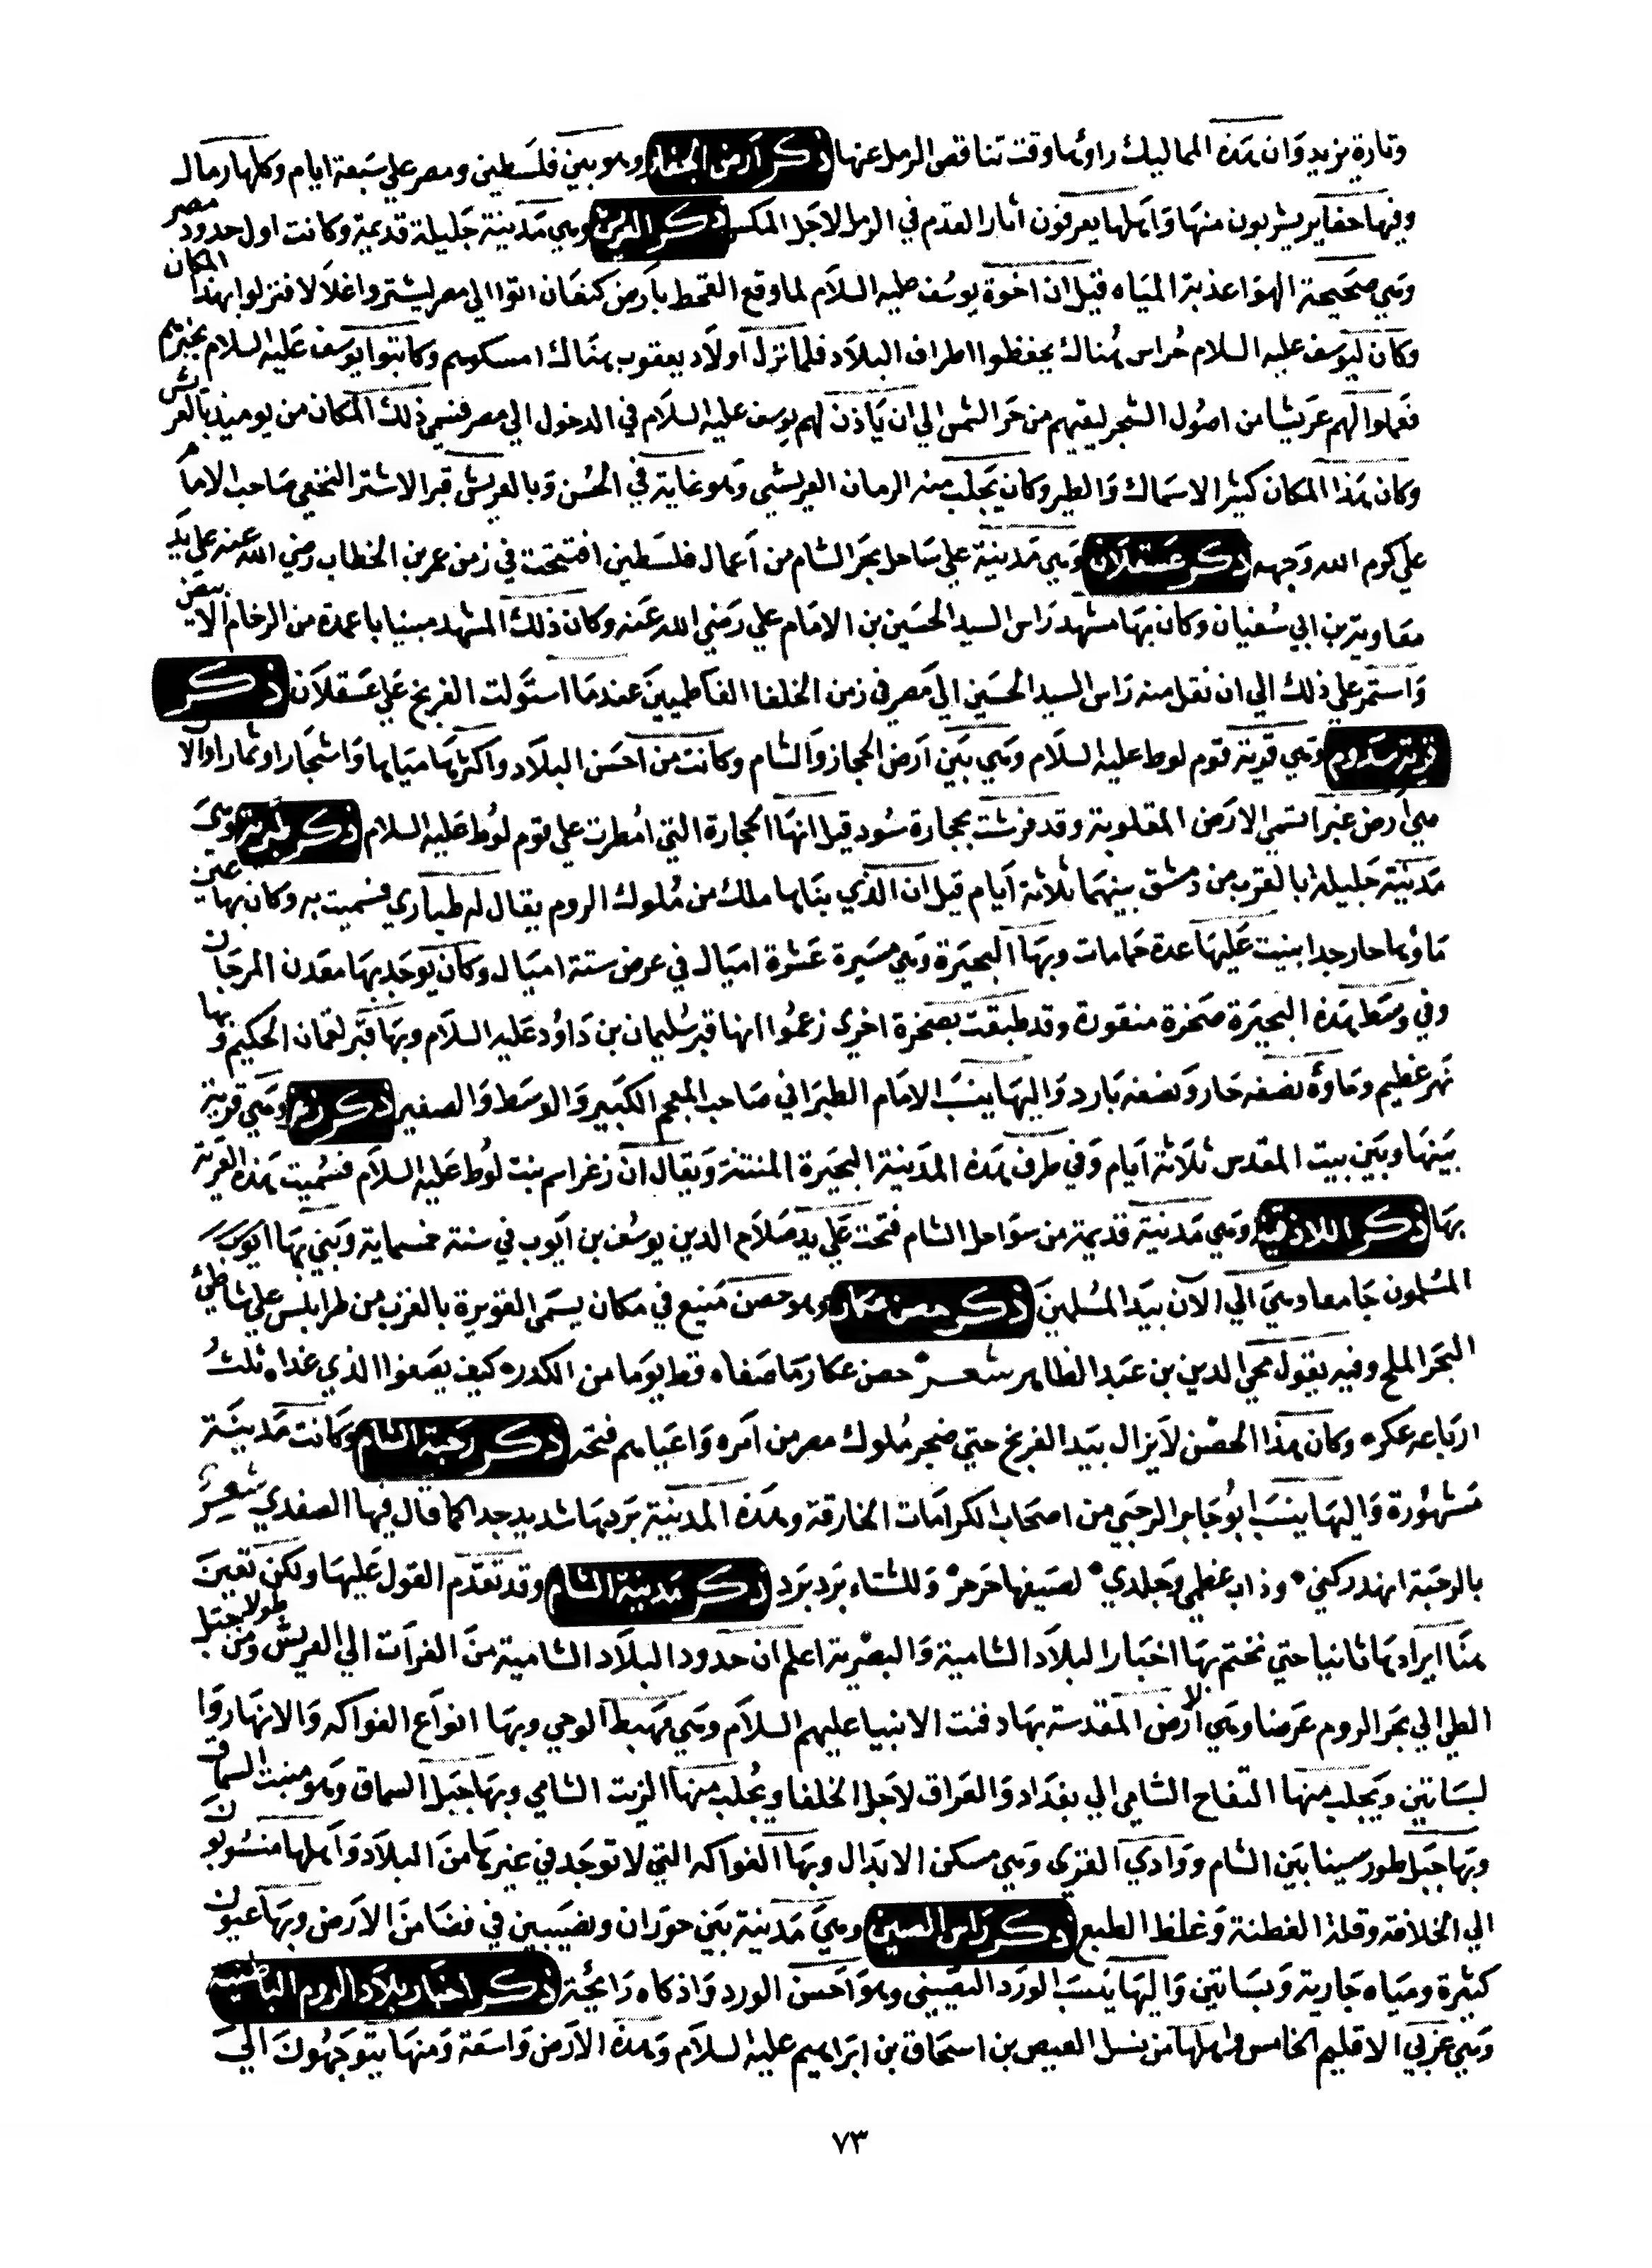 وتارة يزيد وان هذه المماليك راوها وقت تناقص الرمل عنها ذكر ارض الجفار وهو بين فلسطين ومصر على سبعة ايام وكلها رمال
وفيها حفاير يشربون منها واهلها يعرفون اثار القدم في الرمل لاجل المكس ذكر العريش وهي مدينة جليلة قديمة وكانت اول حدود مصر
وهي صحيحة الهوا عذبة المياه قيل ان اخوة يوسف عليه السلام لما وقع القحط بارض كنعان اتوا الي مصر ليشتروا غلالا فنزلوا بهذا المكان
وكان ليوسف عليه السلام حراس هناك يحفظوا اطراف البلاد فلما نزل اولاد يعقوب هناك امسكوهم وكاتبوا يوسف عليه السلام بخبرهم
فعملوا لهم عريشا من اصول الشجر ليقيهم من حر الشمس الي ان ياذن لهم يوسف عليه السلام في الدخول الي مصر فسمي ذلك المكان من يوميذ بالعريش
وكان هذا المكان كثير الاسماك والطير وكان يجلب منه الرمان العريشي وهو غاية في الحسن وبالعريش قبر الاشتر النخعي صاحب الامام
علي كرم الله وجهه ذكر عسقلان وهي مدينة علي ساحل بحر الشام من اعمال فلسطين افتتحت في زمن عمر بن الخطاب رضي الله عنه علي يد
معاوية بن ابي سفيان وكان بها مشهد راس السيد الحسين بن الامام علي رضي الله عنه وكان ذلك المشهد مبنيا باعمدة من الرخام الابيض
واستمر علي ذلك الي ان نقل منه راس السيد الحسين الي مصر في زمن الخلفا الفاطميين عندما استولت الفرنج علي عسقلان ذكر
قرية سدوم وهي قرية قوم لوط عليه السلام وهي بين ارض الحجاز والشام وكانت من احسن البلاد واكثرها مياها واشجارا وثمارا والان
هي ارض غبرا تسمي الارض المقلوبة وقد فرشت بحجارة سود قيل انها الحجارة التي امطرت علي قوم لوط عليه السلام ذكر طبرية وهي
مدينة جليلة بالقرب من دمشق بينهما ثلاثة ايام قيل ان الذي بناها ملك من ملوك الروم يقال له طباري فسميت به وكان بها عين
ماؤها حار جدا بنيت عليها عدة حمامات وبها البحيرة وهي مسيرة عشرة اميال في عرض ستة اميال وكان يوجد بها معدن المرجان
وفي وسط هذه البحيرة صخرة منقورة وقد طبقت بصخرة اخري زعموا انها قبر سليمان بن داود عليه السلام وبها قبر لقمان الحكيم وبها
نهر عظيم وماؤه نصفه حار ونصفه بارد واليها ينسب الامام الطبراني صاحب المعجم الكبير والوسط والصغير ذكر زغر وهي قرية
بينها وبين بيت المقدس ثلاثة ايام وفي طرف هذه المدينة البحيرة المنتنة ويقال ان زغر اسم بنت لوط عليه السلام فسميت هذه القرية
بها ذكر اللاذقية وهي مدينة قديمة من سواحل الشام فتحت علي يد صلاح الدين يوسف بن ايوب في سنة خمسماية وبني بها ايوب
المسلمون جامعا وهي الي الان بيد المسلمين ذكر حصن عكار وهو حصن منيع في مكان يسمي القويرة بالقرب من طرابلس علي شاطئ
البحر الملح وفيه يقول محيي الدين بن عبد الظاهر شعر حصن عكار ما صفاه قط يوما من الكدره كيف يصفوا الذي غداه ثلث
ارباعه عكره وكان هذا الحصن لا يزال بيد الفرنج حتي ضجر ملوك مصر من امره واعياهم فتحه ذكر رحبة الشام وكانت مدينة
مشهورة واليها ينسب ابو جابر الرحبي من اصحاب الكرامات الخارقة وهذه المدينة بردها شديد جدا كما قال فيها الصفدي شعر
بالرحبة انهد ركني وذاب عظمي وجلدي لصيفها حر حر وللشتاء برد برد ذكر مدينة الشام وقد تقدم القول عليها ولكن تعين
هنا ايرادها ثانيا حتي نختم بها اخبار البلاد الشامية والبصرية اعلم ان حدود البلاد الشامية من الفرات الي العريش طولا ومن جبل
الطي الي بحر الروم عرضا وهي الارض المقدسة بها دفنت الانبيا عليهم السلام وهي مهبط الوحي وبها انواع الفواكه والانهار وا
لبساتين ويجلب منها التفاح الشامي الي بغداد والعراق لاجل الخلفا ويجلب منها الزيت الشامي وبها جبل السماق وهو منبت السماق
وبها جبل طور سينا بين الشام ووادي القري وهي مسكن الابدال وبها الفواكه التي لا توجد في غيرها من البلاد واهلها منسوبون
الي الخلافة وقلة الفطنة وغلظ الطبع ذكر راس العين وهي مدينة بين حوران ونصيبين في فضا من الارض وبها عيون
كثيرة ومياه جارية وبساتين واليها ينسب الورد النصيبيني وهو احسن الورد واذكاه رايحة ذكر اخبار بلاد الروم الباطنية
وهي غربي الاقليم الخامس واهلها من نسل العيص بن اسحاق بن ابراهيم عليه السلام وهذه الارض واسعة ومنها يتوجهون الي
٧٣